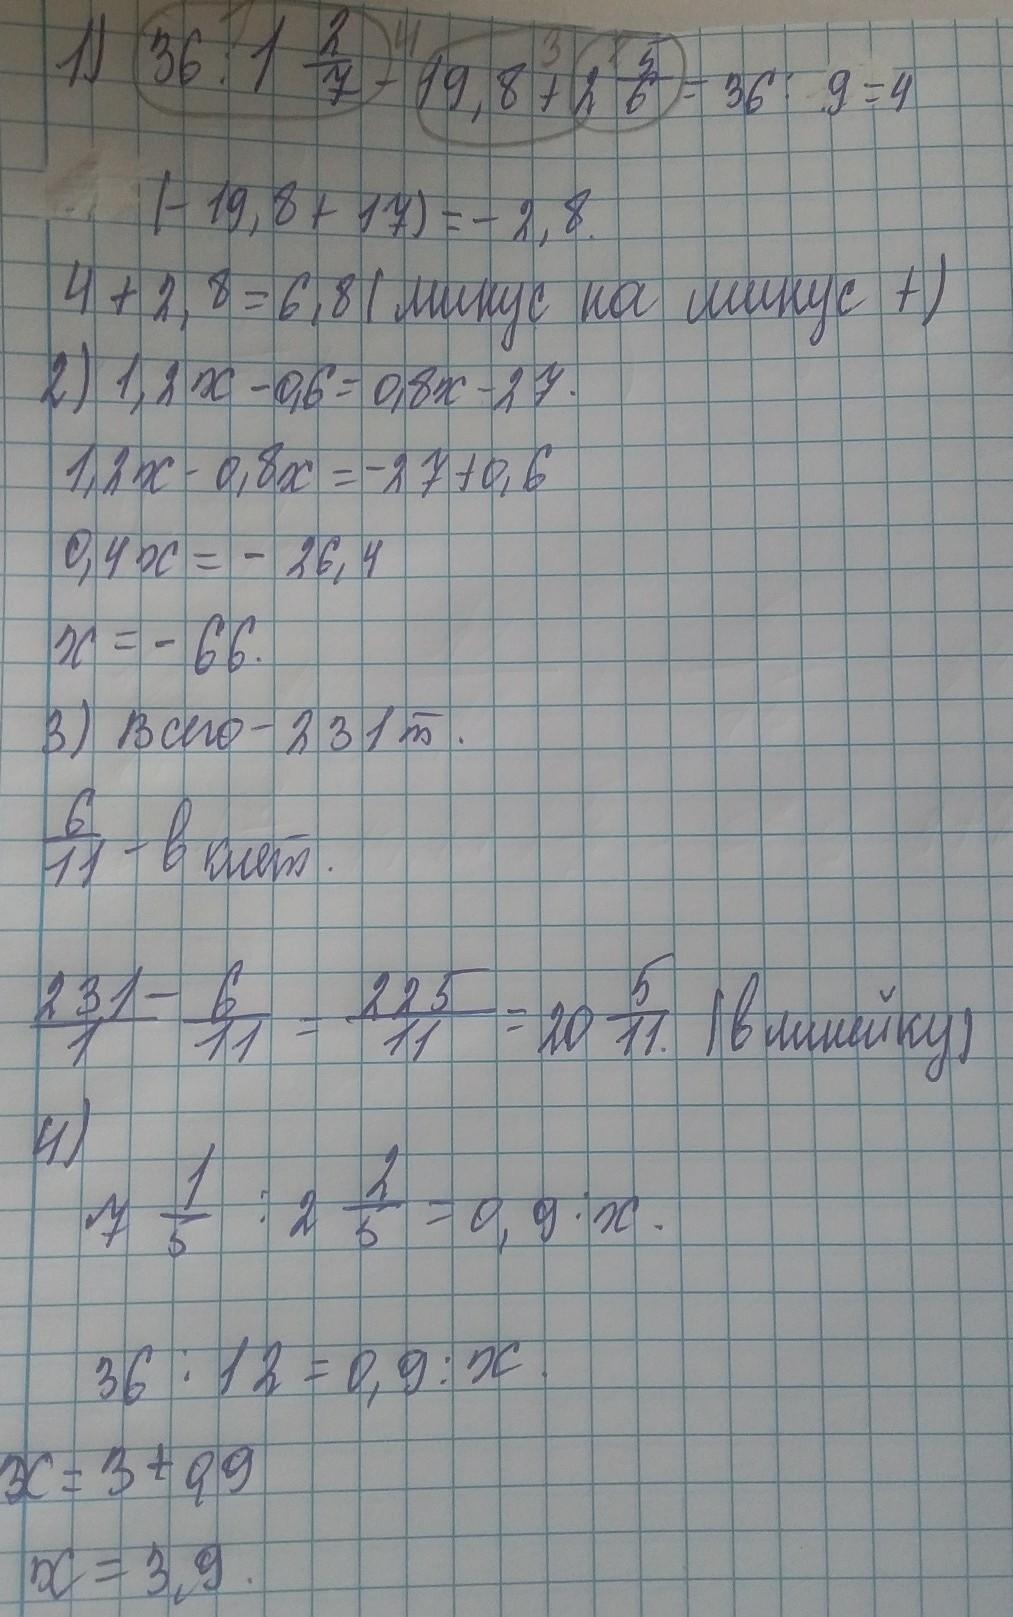 1) 36 : 1 2/7 - 19,8 + 2 5/6 = 36 : 9 = 4
(- 19,8 + 17) = - 2,8.
4 + 2,8 = 6,8 (минус на минус +)
2) 1,2x - 0,6 = 0,8x - 27.
1,2x - 0,8x = -27 + 0,6
0,4x = - 26,4
x = - 66.
3) Всего - 231 т.
6/11 - в клет.
231/1 - 6/11 = 225/11 = 20 5/11. (в линейку)
4)
7 1/5 : 2 2/5 = 0,9 : x.
36 : 12 = 0,9 : x.
x = 3 + 0,9
x = 3,9.